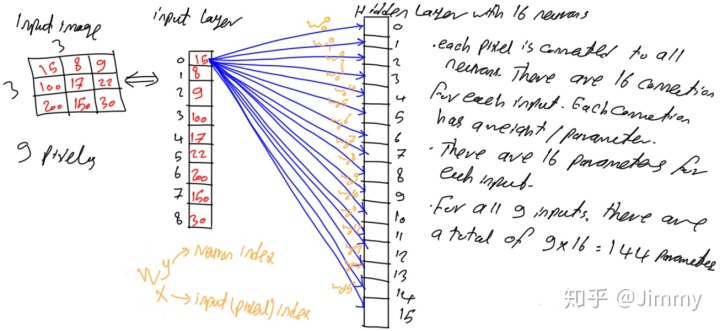 Input image
3
3
15 8 9
100 17 22
200 150 30
9 pixels
input Layer
0 15
1 8
2 9
3 100
4 17
5 22
6 200
7 150
8 30
W y x
Neuron index
input (pixel) index
Hidden Layer with 16 neurons
0
1
2
3
4
5
6
7
8
9
10
11
12
13
14
15
. each pixel is connected to all
neurons. There are 16 connection
for each input. Each connection
has a weight/parameter.
. There are 16 parameters for
each input.
. For all 9 inputs, there are
a total of 9x16 = 144 parameters
知乎 @Jimmy